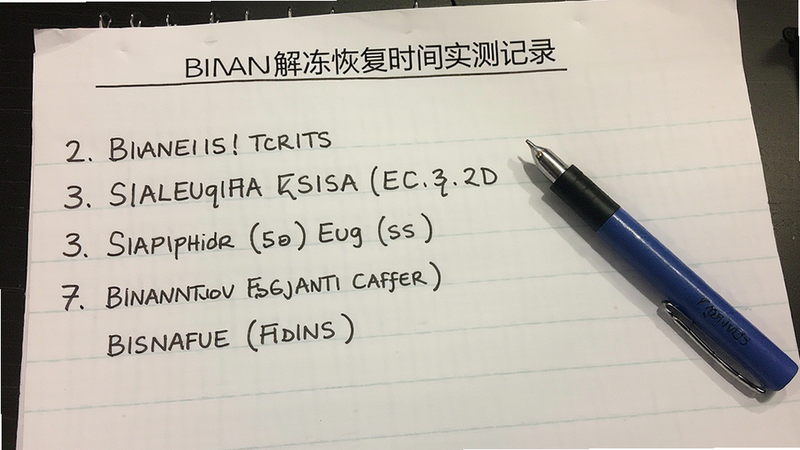 BINAN解冻恢复时间实测记录
2. BIANEIIS! TCRITS
3. SIALEUqIFIA ESISA (EC.3.2D
3. SIAPIPHidR (50) Eug (SS)
7. BINANNTJOV EsGJANTI CAffER)
BISNAFUE (FIDINS)